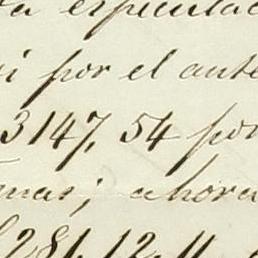 ta especulac
i por el ante
3147, 54 por
mas; ahora
281.12.11